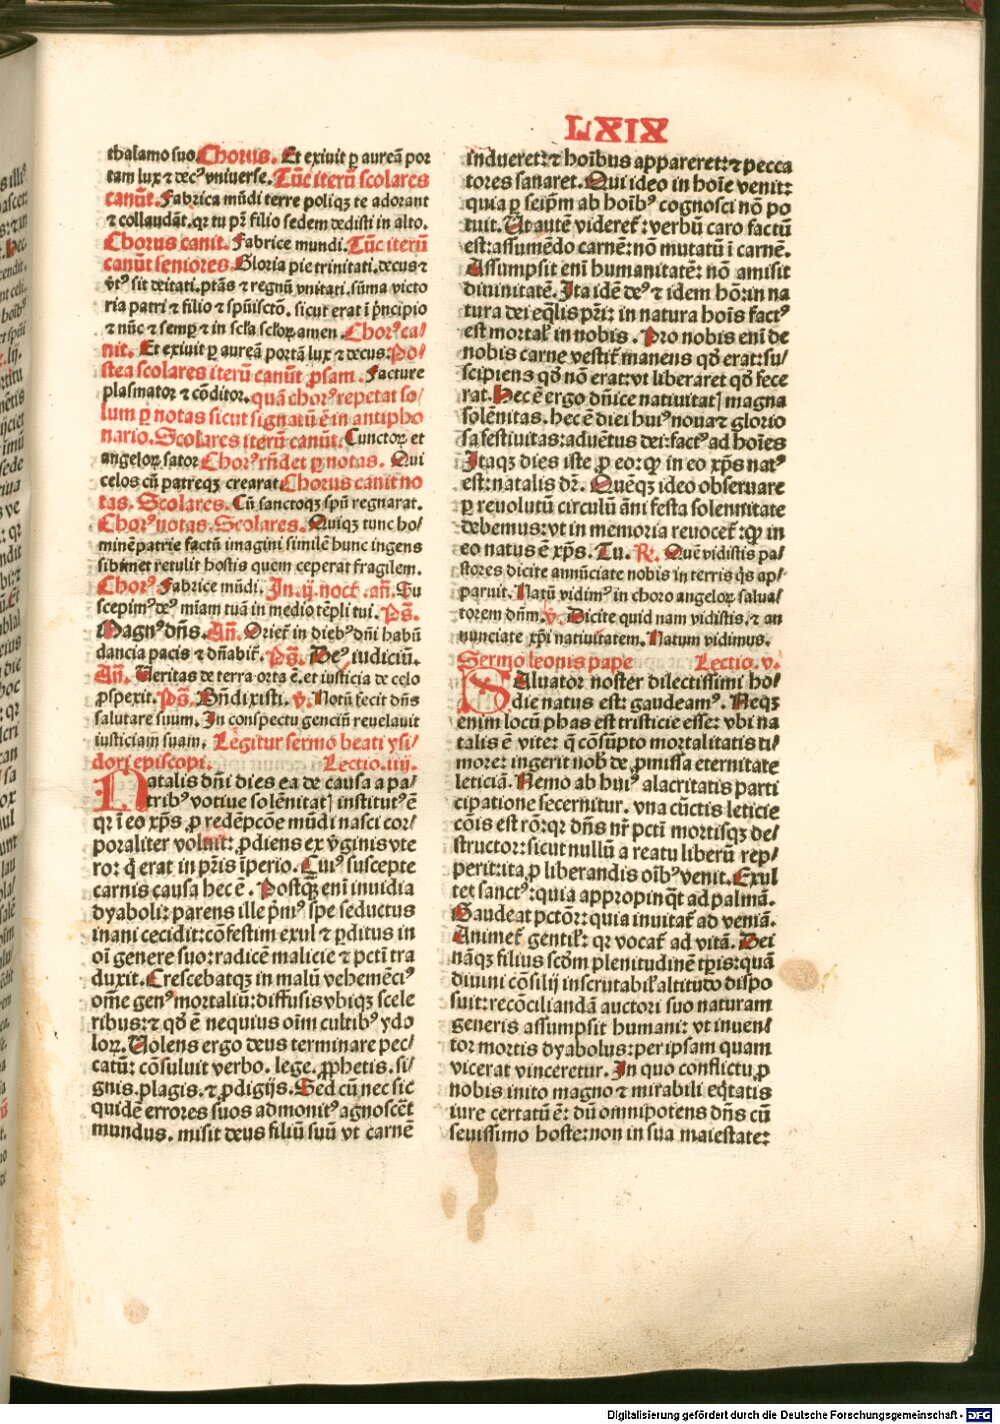 LXIX
thalamo suo. Chorus. Et exiuit ꝑ aureā por
tam lux ⁊ dec⁹ vniuerse. Tūc iterū scolares
canūt. Fabrica mūdi terre poliqꝫ te adorant
⁊ collaudāt. qr tu pꝛ̄ filio sedem dedisti in alto.
Chorus canit. Fabrice mundi. Tūc iterū
canūt seniores. Gloria pie trinitati. decus ⁊
v̄t⁹ sit deitati. ptās ⁊ regnū vnitati. sūma victo
ria patri ⁊ filio ⁊ spūisctō. sicut erat ī pⁱncipio
⁊ nūc ⁊ semꝑ ⁊ in scła scłoꝝ amen. Chor⁹ ca-
nit. Et exiuit ꝑ aureā portā lux ⁊ decus. Po/
stea scolares iterū canūt ꝓsam. Facture
plasmator ⁊ cōditor. quā chor⁹ repetat so/
lum ꝑ notas sicut signatū ē in antipho
nario. Scolares iterū canūt. Cunctoꝝ et
angeloꝝ sator Chor⁹ rn̄det ꝑ notas. Qui
celos cū patreqꝫ crearat Chorus canit no
tas. Scolares. Cū sanctoqꝫ spū regnarat.
Chor⁹ notas. Scolares. Quiqꝫ tunc ho/
minē patrie factū imagini similē hunc ingens
sibimet retulit hostis quem ceperat fragilem.
Chor⁹ Fabrice mūdi. In. ij. noct̄. an̄. Su
scepim⁹ de⁹ miam tuā in medio tēpli tui. Ps̄.
Magn⁹ dn̄s. An̄. Oriet̄ in dieb⁹ dn̄i habū
dancia pacis ⁊ dn̄abit̄. Ps̄. De⁹ iudiciū.
An̄. Veritas de terra orta ē. et iusticia de celo
ꝓspexit. Ps̄. Bn̄dixisti. v̄. Notū fecit dn̄s
salutare suum. In conspectu genciū reuelauit
iusticiam suam. Legitur sermo beati ysi/
dori episcopi. Lectio. iiij.
Natalis dn̄i dies ea de causa a pa/
trib⁹ votiue solēnitatꝭ institut⁹ ē
qr ī eo xp̄s ꝓ redēpcōe mūdi nasci cor/
poraliter voluit: ꝓdiens ex v̄ginis vte
ro: q̇ erat in pr̄is īperio. Cui⁹ suscepte
carnis causa hec ē. Postqꝫ eni inuidia
dyaboli: parens ille pⁱm⁹ spe seductus
inani cecidit: cōfestim exul ⁊ ꝑditus in
oī genere suo: radicē malicie ⁊ pcti tra
duxit. Crescebatqꝫ in malū vehemēci⁹
om̄e gen⁹ mortaliū: diffusis vbiqꝫ scele
ribus: ⁊ qd̄ ē nequius oīm cultib⁹ ydo
loꝝ. Volens ergo deus terminare pec/
catū: cōsuluit verbo. lege. ꝓphetis. si/
gnis. plagis. ⁊ ꝓdigijs. Sed cū nec sic
quidē errores suos admonit⁹ agnoscēt
mundus. misit deus filiū suū vt carnē
indueret: ⁊ hoībus appareret: ⁊ pecca
tores sanaret. Qui ideo in hoīe venit:
quia ꝑ seipm̄ ab hoīb⁹ cognosci nō po
tuit. Ut autē videret̄: verbū caro factū
est: assumēdo carnē: nō mutatū ī carnē.
Assumpsit enī humanitatē: nō amisit
diuinitatē. Ita idē de⁹ ⁊ idem hō: in na
tura dei eq̄lis pr̄i: in natura hoīs fact⁹
est mortał in nobis. Pro nobis eni de
nobis carne vestit̄ manens qd̄ erat: su/
scipiens qd̄ nō erat: vt liberaret qd̄ fece
rat. Hec ē ergo dn̄ice natiuitatꝭ magna
solēnitas. hec ē diei hui⁹ noua ⁊ glorio
sa festiuitas: aduētus dei: fact⁹ ad hoīes
Itaqꝫ dies iste ꝓ eo: ꝙ in eo xp̄s nat⁹
est: natalis dr̄. Quēqꝫ ideo obseruare
ꝑ reuolutū circulū āni festa solennitate
debemus: vt in memoria reuocet̄: ꝙ in
eo natus ē xp̄s. Tu. R̄. Quē vidistis pa/
stores dicite annūciate nobis in terris q̇s ap/
paruit. Natū vidim⁹ in choro angeloꝝ salua/
torem dn̄m. v̄. Dicite quid nam vidistis. ⁊ an
nunciate xp̄i natiuitatem. Natum vidimus.
Sermo leonis pape Lectio. v.
Saluator noster dilectissimi ho/
die natus est: gaudeam⁹. Neqꝫ
enim locū phas est tristicie esse: vbi na
talis ē vite: q̄ cōsūpto mortalitatis ti/
more: ingerit nob̄ de ꝓmissa eternitate
leticiā. Nemo ab hui⁹ alacritatis parti
cipatione secernitur. vna cūctis leticie
cōis est rō: qr dn̄s nr̄ pcti mortisqꝫ de/
structor: sicut nullū a reatu liberū rep/
perit: ita ꝓ liberandis oīb⁹ venit. Exul
tet sanct⁹: quia appropinq̄t ad palmā.
Gaudeat pctōr: quia inuitat̄ ad veniā.
Animet̄ gentił: qr vocat̄ ad vitā. Dei
nāqꝫ filius scdm̄ plenitudinē tp̄is: quā
diuini cōsilij inscrutabił altitudo dispo
suit: recōciliandā auctori suo naturam
generis assumpsit humani: vt inuen/
tor mortis dyabolus: per ipsam quam
vicerat vinceretur. In quo conflictu ꝓ
nobis inito magno ⁊ mirabili eq̄tatis
iure certatū ē: dū omnipotens dn̄s cū
seuissimo hoste: non in sua maiestate:
Digitalisierung gefördert durch die Deutsche Forschungsgemeinschaft - DFG